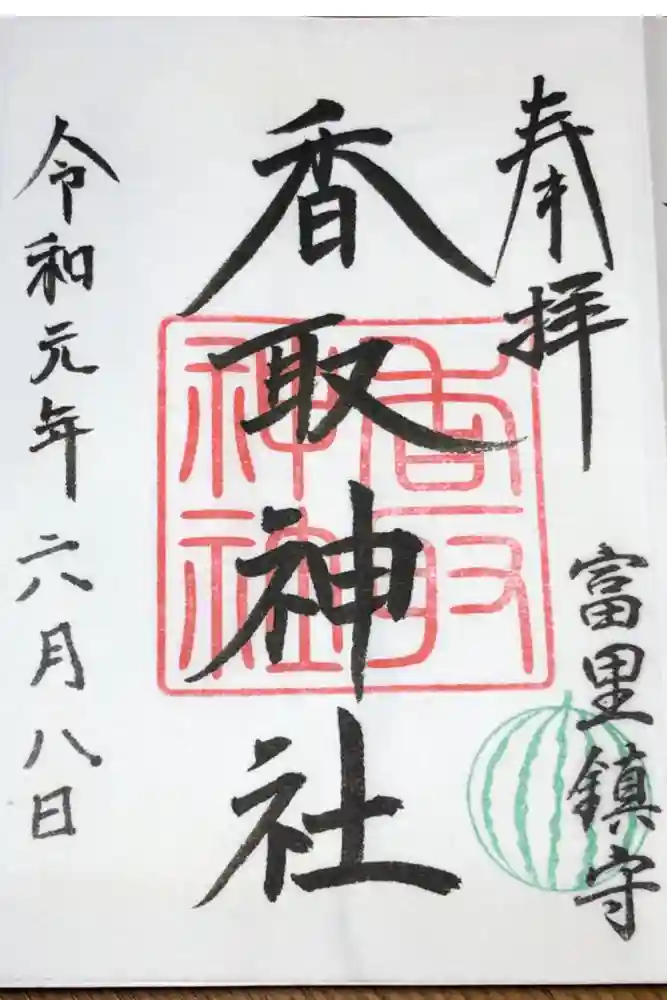 奉拝
富里鎮守
香取神社
香取
神社
令和元年六月八日